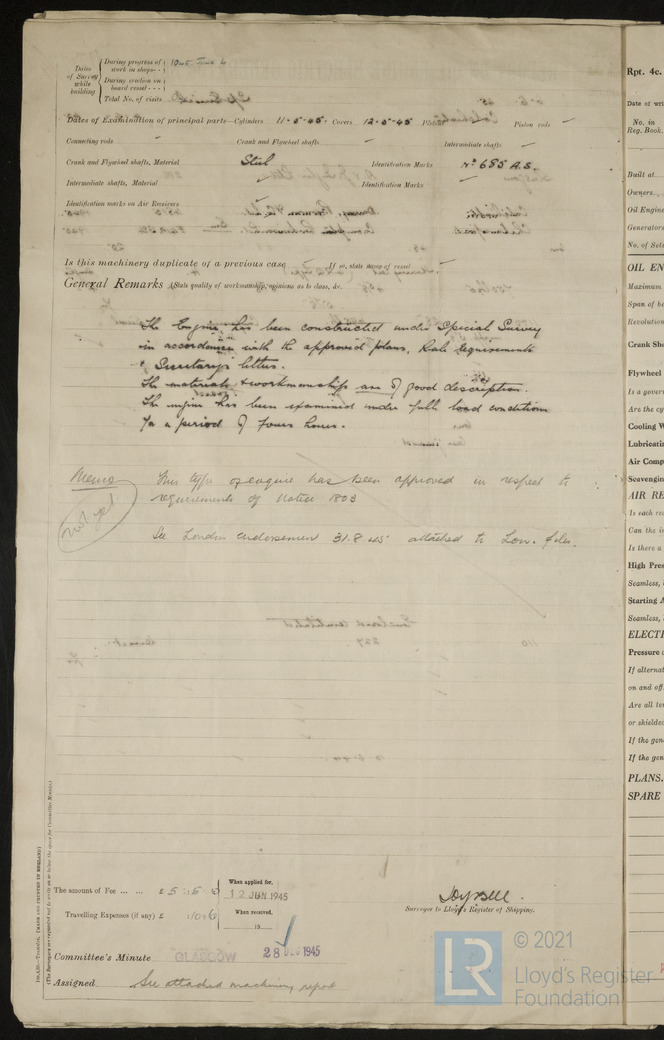 Dates of Survey while building
During progress of work in shops - -
1945 June 6
During erection on board vessel - - -
Total No. of visits
Dates of Examination of principal parts—Cylinders 11-5-45 Covers 12-5-45 Pistons Piston rods —
Connecting rods — Crank and Flywheel shafts — Intermediate shafts —
Crank and Flywheel shafts, Material Steel Identification Marks No 685 A.S.
Intermediate shafts, Material — Identification Marks —
Identification marks on Air Receivers —
Is this machinery duplicate of a previous case — If so, state name of vessel —
General Remarks (State quality of workmanship, opinions as to class, &c.
The Engine has been constructed under Special Survey
in accordance with the approved plans, Rule requirements
& Secretary's letters.
The materials & workmanship are of good description.
The engine has been examined under full load conditions
for a period of four hours.
Memo This type of engine has been approved in respect to
requirements of Notice 1803
not yet
See London endorsement 31.8.45 attached to Lon. files.
The amount of Fee ... ... £ 5 : 5 : 0
When applied for, 12 JUN 1945
Travelling Expenses (if any) £ : 10 : 6
When received, 19
Surveyor to Lloyd's Register of Shipping.
Committee's Minute GLASGOW 28 1945
Assigned See attached machinery report
(MADE AND PRINTED IN ENGLAND)
(The Surveyors are requested not to write on or below the space for Committee's Minute.)
Rpt. 4c.
Date of wri
No. in
Reg. Book.
Built at
Owners
Oil Engine
Generators
No. of Sets
OIL EN
Maximum
Span of be
Revolution
Crank Sha
Flywheel
Is a gover
Are the cy
Cooling W
Lubricatin
Air Comp
Scavengin
AIR RE
Is each re
Can the i
Is there a
High Pres
Seamless,
Starting A
Seamless,
ELECTR
Pressure o
If alternat
on and off
Are all ter
or shielde
If the gen
If the gen
PLANS.
SPARE
LR
© 2021
Lloyd's Register
Foundation